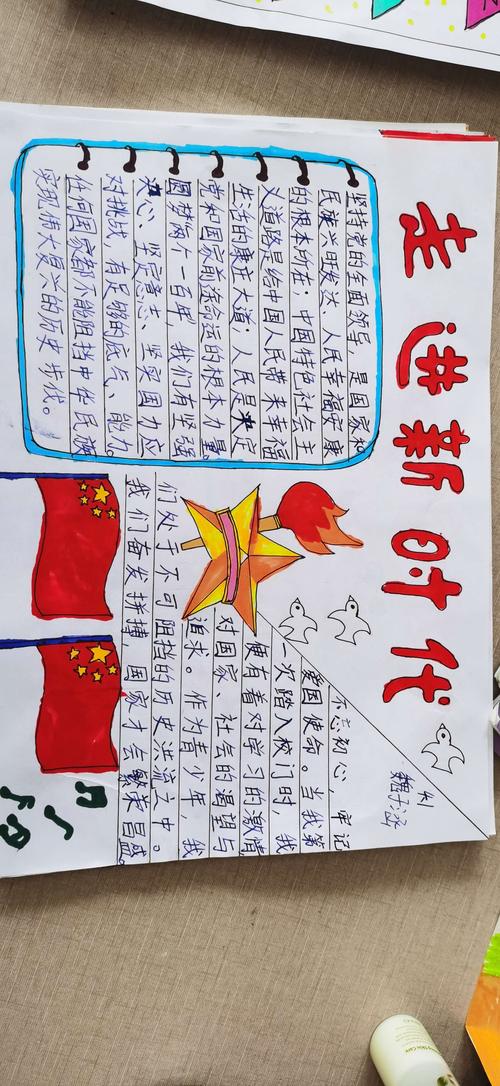 走进新时代
4.1
魏子涵
坚持党的全面领导，是国家和
民族兴旺发达、人民幸福安康
的根本切在；中国特色社会主
义道路是给中国人民带来幸福
生活的康庄大道；人民是决定
党和国家前途命运的根本力量。
圆梦两个一百年，我们有坚强
决心、坚定意志、坚实国力应
对挑战，有足够的底气、能力。
任何国家都不能阻挡中华民族
实现伟大复兴的历史步伐。
不忘初心，牢记
爱国使命。当我第
一次踏入校门时，我
便有着对学习的激情
对国家、社会的渴望与
追求。作为青少年，我
们处于不可阻挡的历史洪流之中。
我们奋发拼搏，国家才会繁荣昌盛。